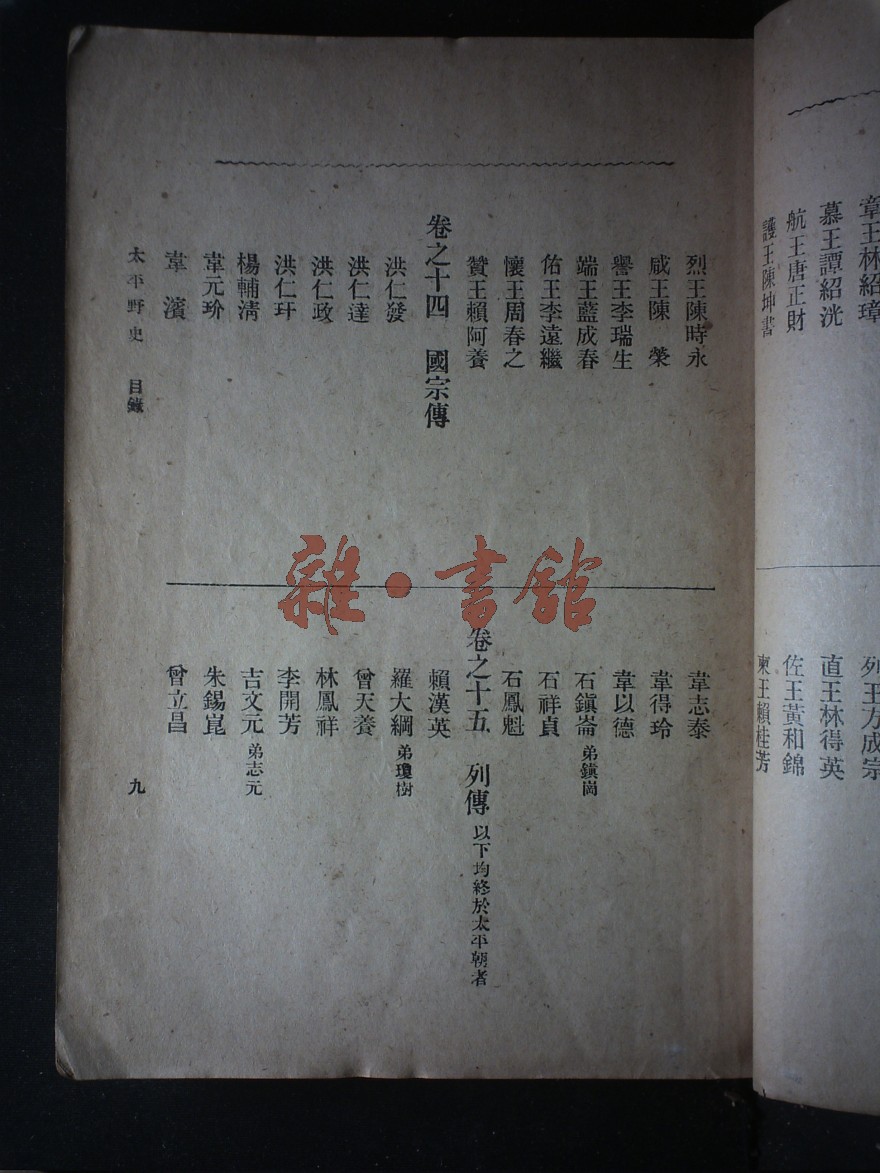 章王林紹璋
慕王譚紹洸
航王唐正財
護王陳坤書
列王方成宗
直王林得英
佐王黃和錦
東王賴桂芳
烈王陳時永
咸王陳 榮
譽王李瑞生
端王藍成春
佑王李遠繼
懷王周春之
贊王賴阿養
卷之十四 國宗傳
洪仁發
洪仁達
洪仁政
洪仁玕
楊輔清
韋元玠
韋 濱
韋志泰
韋得玲
韋以德
石鎮崙 弟鎮崗
石祥貞
石鳳魁
卷之十五 列傳 以下均終於太平朝者
賴漢英
羅大綱 弟瓊樹
曾天養
林鳳祥
李開芳
吉文元 弟志元
朱錫崑
曾立昌
太平野史 目錄
九
雜·書館